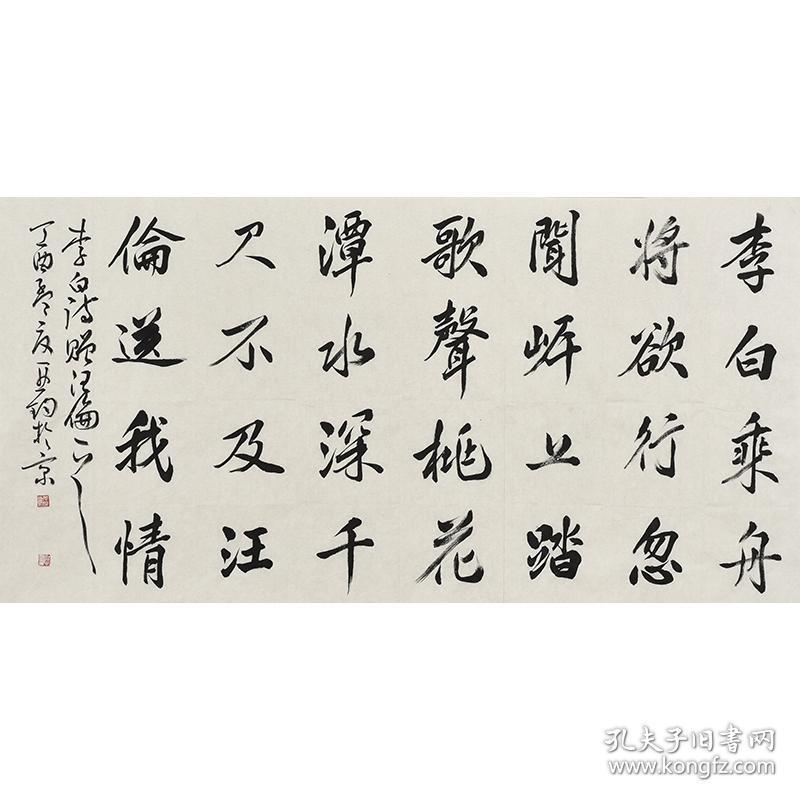 李白乘舟
將欲行忽
聞岍上踏
歌聲桃花
潭水深千
尺不及汪
倫送我情
李白詩贈汪倫一首
丁酉年夏
於京
孔夫子旧书网
www.kongfz.com